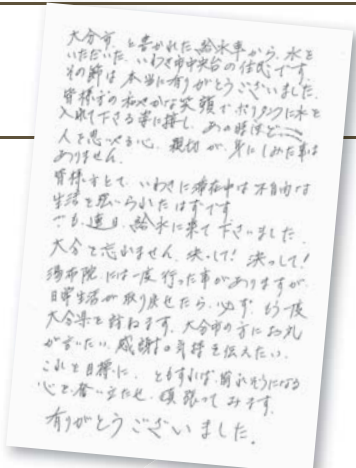 大分市、と書かれた給水車から、水を
いただいた、いわき市中央台の住民です。
その節は本当に有りがとうございました。
皆様方の和やかな笑顔でポリタンクに水を
入れて下さる事に接し、あの時ほど
人を思いやる心、親切が身にしみた事は
ありません。
皆様方とて、いわきに滞在中は不自由な
生活を強いられたはずです
でも連日、給水に来て下さいました。
大分を忘れません、決して!決して!
湯布院には一度行った事がありますが、
日常生活が取り戻せたら、必ず、もう一度
大分県を訪ねます。大分市の方にお礼
が言いたい、感謝の気持を伝えたい。
これを目標に、ともすれば崩れそうになる
心を奮い立たせ、頑張ってみます。
有りがとうございました。